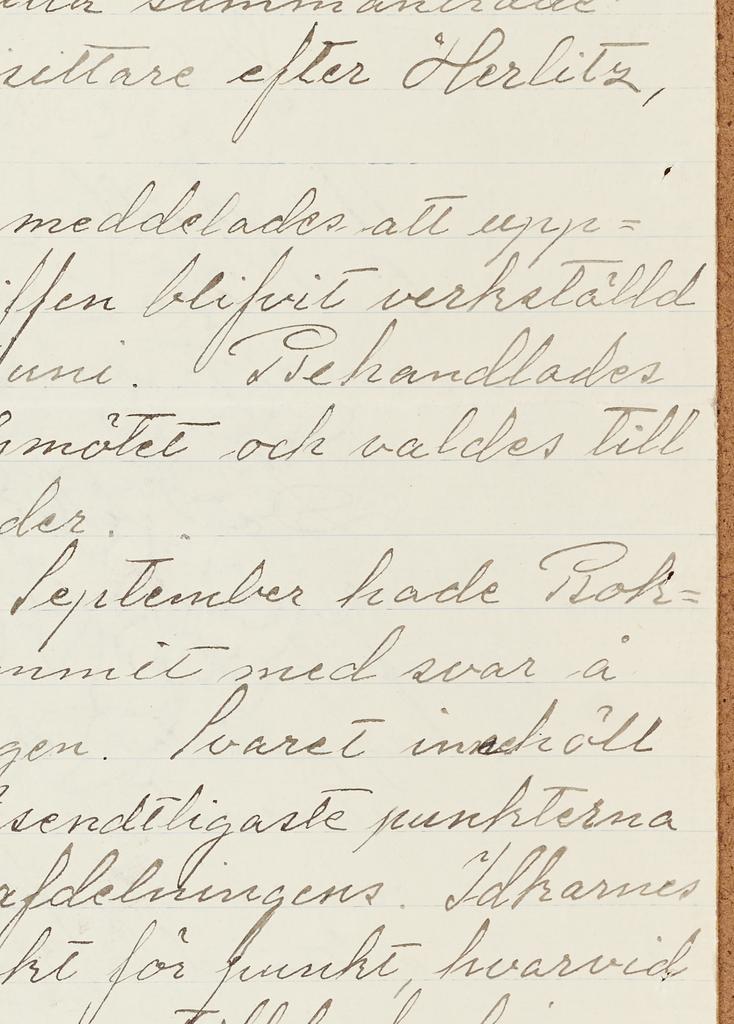 sammanträde
sittare efter Herlitz,
meddelades att upp=
iffen blifvit verkställd
uni. Behandlades
mötet och valdes till
der.
September hade Bok=
mmit med svar å
gen. Svaret innehöll
sendtligaste punkterna
afdelningens. Idkarnes
kt för punkt, hvarvid